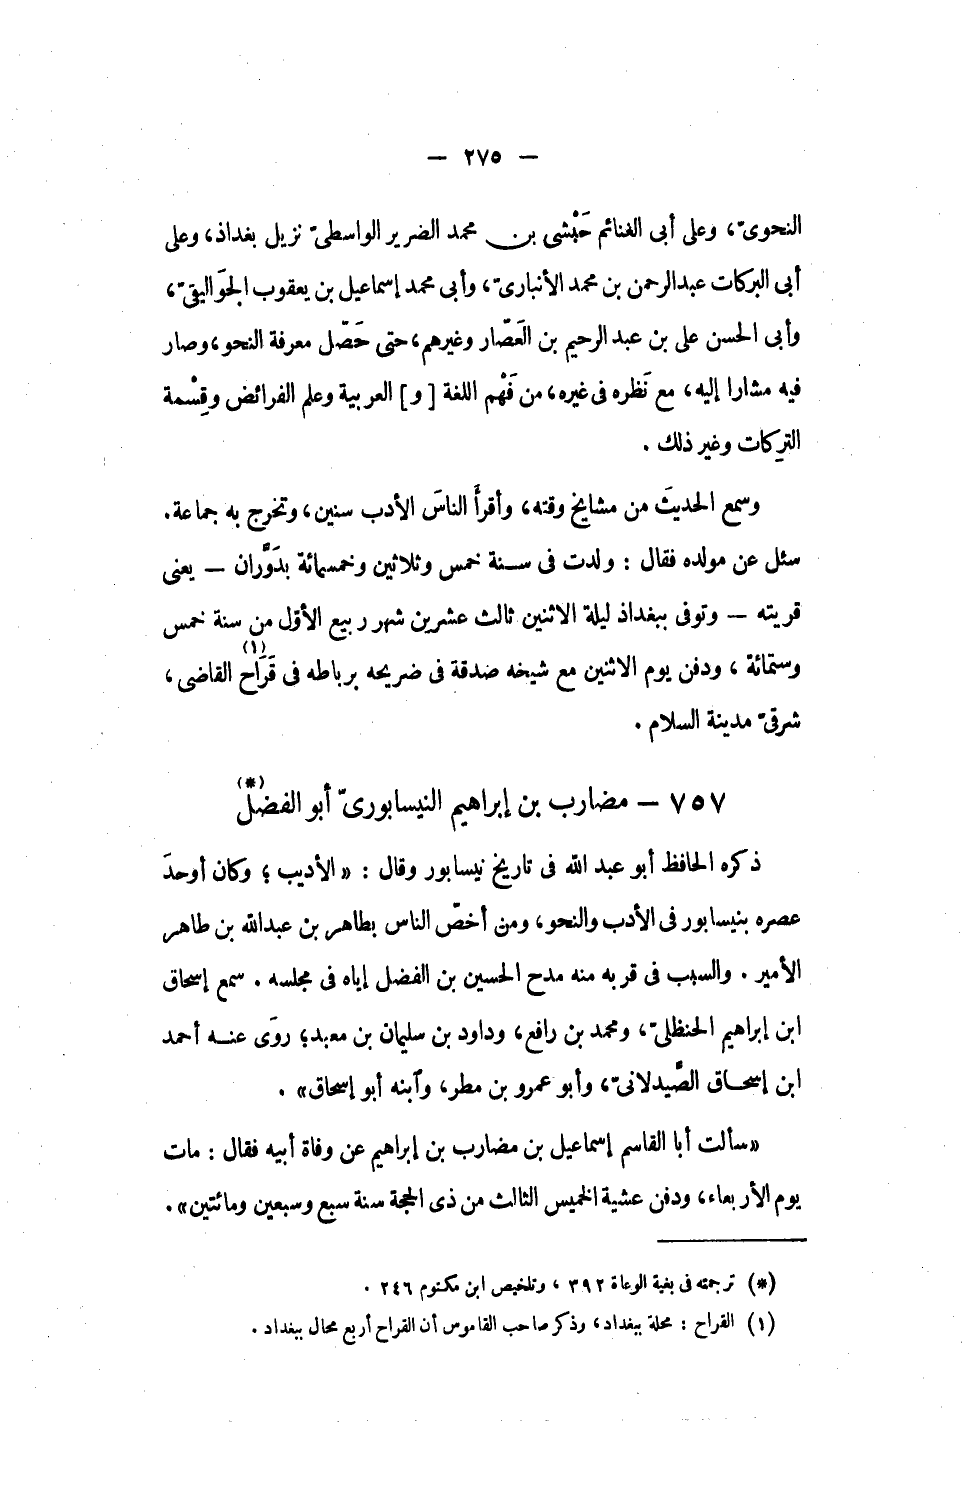 — ٢٧٥ —
النحوىّ، وعلى أبى الغنائم حَبْشى بن محمد الضرير الواسطىّ نزيل بغداذ، وعلى
أبى البركات عبدالرحمن بن محمد الأنبارىّ، وأبى محمد إسماعيل بن يعقوب الجَوَاليقىّ،
وأبى الحسن على بن عبد الرحيم بن العَصّار وغيرهم، حتى حَصّل معرفة النحو، وصار
فيه مشارا إليه، مع نَظره فى غيره، من فَهْم اللغة [ و ] العربية وعلم الفرائض وقِسْمة
التِركات وغير ذلك .
وسمع الحديثَ من مشايخ وقته، وأقرأَ الناسَ الأدب سنين، وتخرج به جماعة.
سئل عن مولده فقال : ولدت فى سنة خمس وثلاثين وخمسمائة بدَوَّران — يعنى
قريته — وتوفى ببغداذ ليلة الاثنين ثالث عشرين شهر ربيع الأوّل من سنة خمس
وستمائة ، ودفن يوم الاثنين مع شيخه صدقة فى ضريحه برباطه فى قَرَاح(١) القاضى ،
شرقىّ مدينة السلام .
٧٥٧ — مضارب بن إبراهيم النيسابورىّ أبو الفضل(*)
ذكره الحافظ أبو عبد الله فى تاريخ نيسابور وقال : «الأديب ؛ وكان أوحدَ
عصره بنيسابور فى الأدب والنحو، ومن أخصّ الناس بطاهر بن عبدالله بن طاهر
الأمير . والسبب فى قربه منه مدح الحسين بن الفضل إياه فى مجلسه . سمع إسحاق
ابن إبراهيم الحنظلىّ، ومحمد بن رافع، وداود بن سليمان بن معبد؛ روَى عنه أحمد
ابن إسحاق الصَّيدلانىّ، وأبو عمرو بن مطر، وآبنه أبو إسحاق» .
«سألت أبا القاسم إسماعيل بن مضارب بن إبراهيم عن وفاة أبيه فقال : مات
يوم الأربعاء، ودفن عشية الخميس الثالث من ذى الحجة سنة سبع وسبعين ومائتين».
(*) ترجمته فى بغية الوعاة ٣٩٢ ، وتلخيص ابن مكتوم ٢٤٦ .
(١) القراح : محلة ببغداد، وذكر صاحب القاموس أن القراح أربع محال ببغداد .